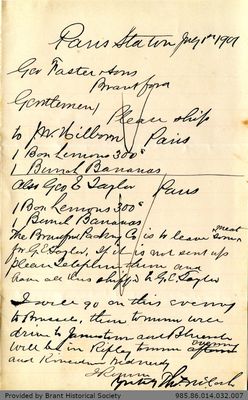 Paris Station July 1st 1901
Geo Foster & Sons
Brantford
Gentlemen
Please ship
to J W Hilborn Paris
1 Box Lemons 300s
1 Bunch Bananas
Also Geo E Taylor Paris
1 Box Lemons 300s
1 Bunch Bananas
The Brantford Packing Co is to leave meat
for G E Taylor, If it is not sent up
please telephone them and
have all this shipped to G E Taylor
I will go on this evening
to, then tomorrow will
drive to and
will be in Ripley
and Kennedy
Provided by Brant Historical Society
985.86.014.032.007